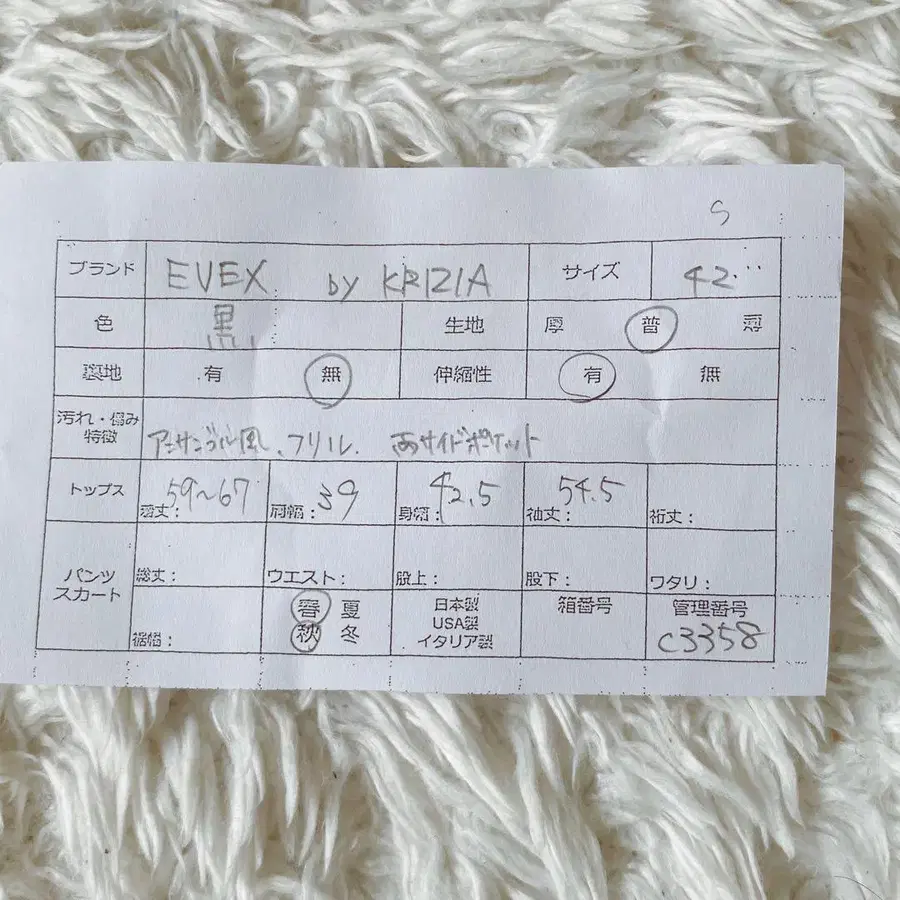 S
ブランド EVEX by KRIZIA サイズ 42
色 黒 生地 厚 普 薄
裏地 有 無 伸縮性 有 無
汚れ・傷み
特徴 アンサンブル風、フリル、両サイドポケット
トップス 着丈: 59~67 肩幅: 39 身幅: 42.5 袖丈: 54.5 裄丈:
パンツ
スカート 総丈: ウエスト: 股上: 股下: ワタリ:
裾幅: 春 夏 日本製 箱番号 管理番号
秋 冬 USA製 C3358
イタリア製